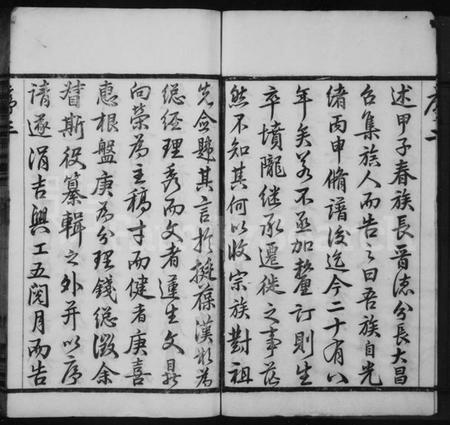 序二
述甲子春族長晉德分長大昌
召集族人而告之曰吾族自光
緒丙申脩譜後迄今二十有八
年矣若不亟加釐訂則生
卒墳隴繼承遷徙之事茫
然不知其何以收宗族對祖
先僉韙其言於挺葆漢形為
總經理秀而文者蓮生文
向榮為主稿才而健者庚喜
惠根盤庚為分理錢總徵余
督斯役纂輯之外并以序
請遂涓吉興工五閱月而告
序三